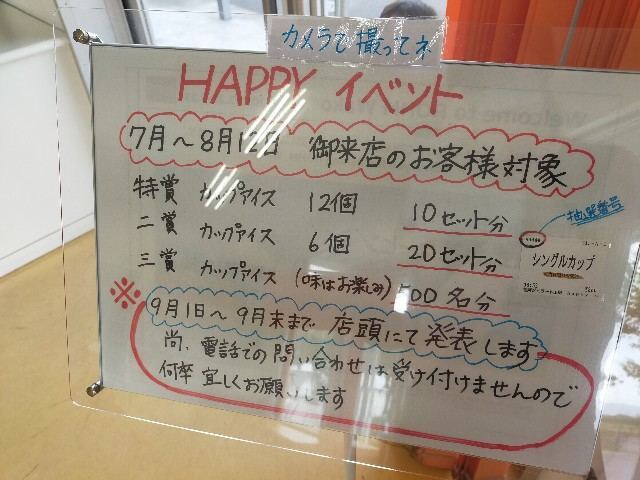 カメラで撮ってネ
HAPPY イベント
7月～8月12日 御来店のお客様対象
特賞 カップアイス 12個 10セット分
二賞 カップアイス 6個 20セット分
三賞 カップアイス (味はお楽しみ) 500名分
抽選番号
シングルカップ
※ 9月1日～9月末まで 店頭にて発表します
尚、電話での問い合わせは受け付けませんので
何卒 宜しくお願いします